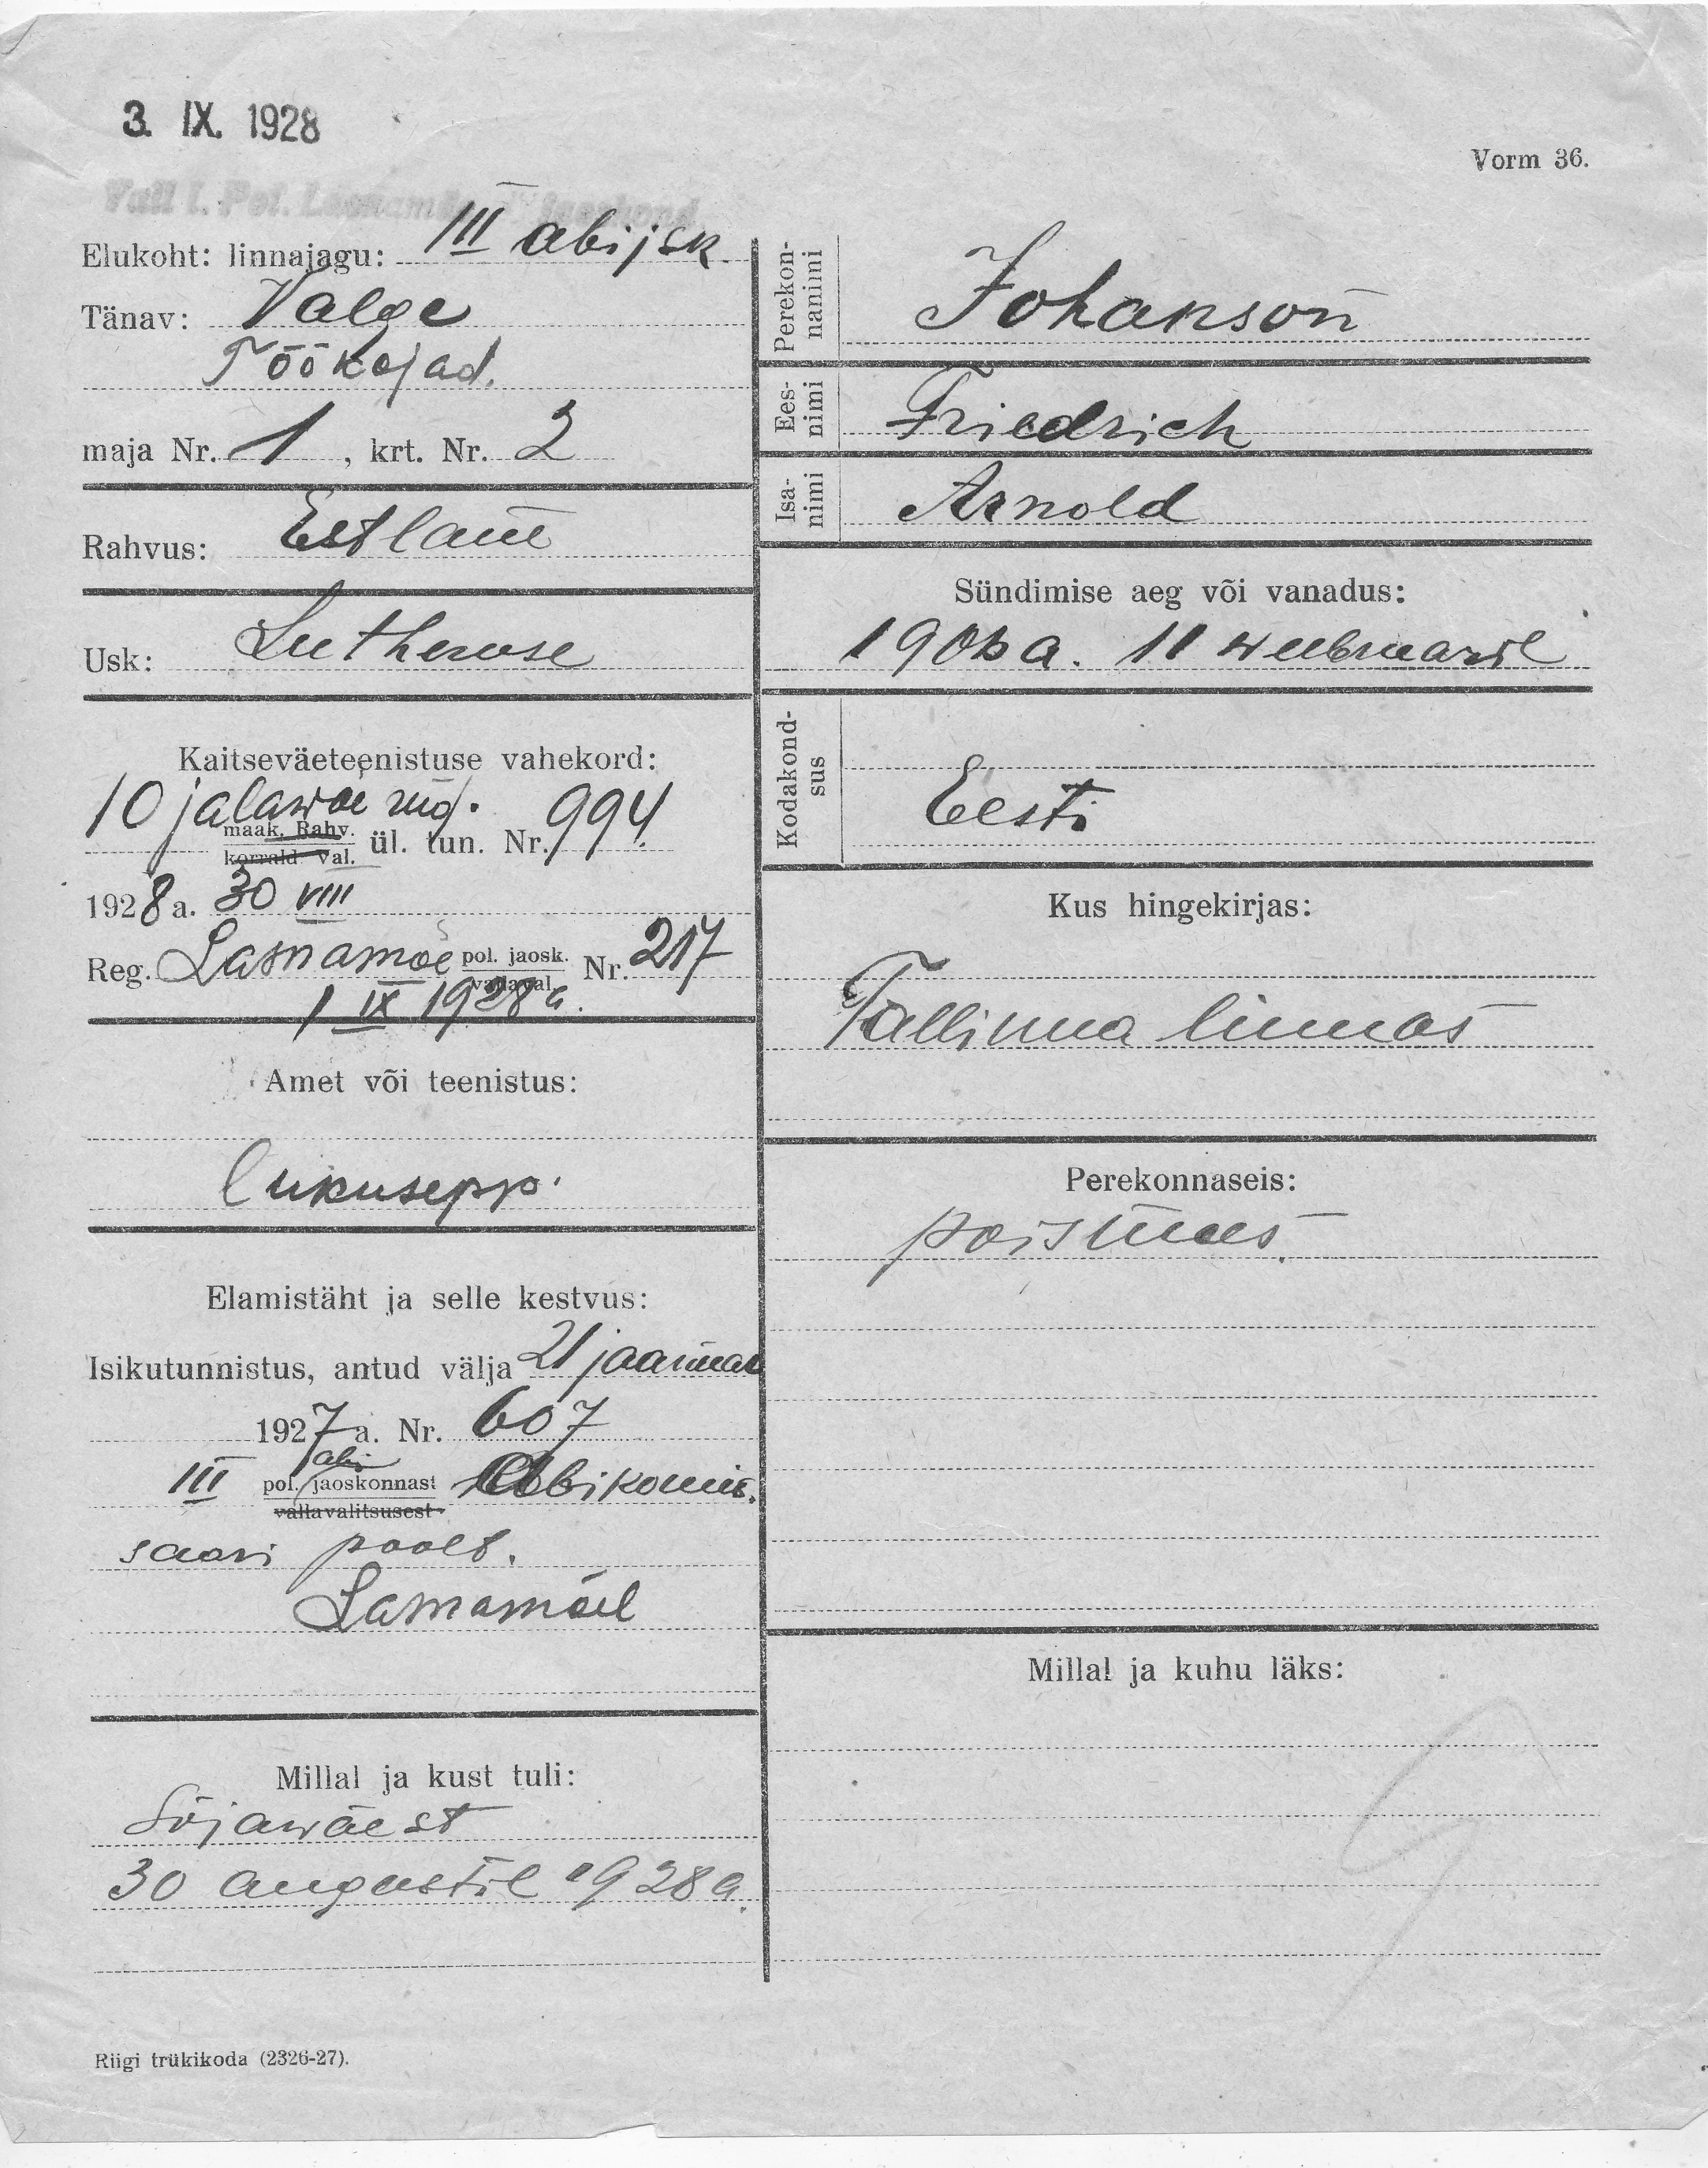 3. IX. 1928
Vorm 36.
Elukoht: linnajagu: III abijsk.
Tänav: Valge
Töökojad.
maja Nr. 1, krt. Nr. 2
Rahvus: Estlane
Usk: Lutheruse
Kaitseväeteenistuse vahekord:
10 jalawäe rüg.
maak. Rahv.
korrald. Val. ül. tun. Nr. 994
1928 a. 30 VIII
Reg. Lasnamäe pol. jaosk. Nr. 217
vallaval.
1 IX 1928 a.
Amet või teenistus:
lukusepp.
Elamistäht ja selle kestvus:
Isikutunnistus, antud välja 21 jaanuar
1927 a. Nr. 607
abi
III pol. jaoskonnast Abikomis.
vallavalitsusest
saari poolt.
Lasnamäel
Millal ja kust tuli:
Sõjawäest
30 augustil 1928 a.
Riigi trükikoda (2326-27).
Perekon-
nanimi
Johanson
Ees-
nimi
Friedrich
Isa-
nimi
Arnold
Sündimise aeg või vanadus:
a. 11 weebruaril
Kodakond-
sus
Eesti
Kus hingekirjas:
Tallinna linnas
Perekonnaseis:
poismees.
Millal ja kuhu läks: